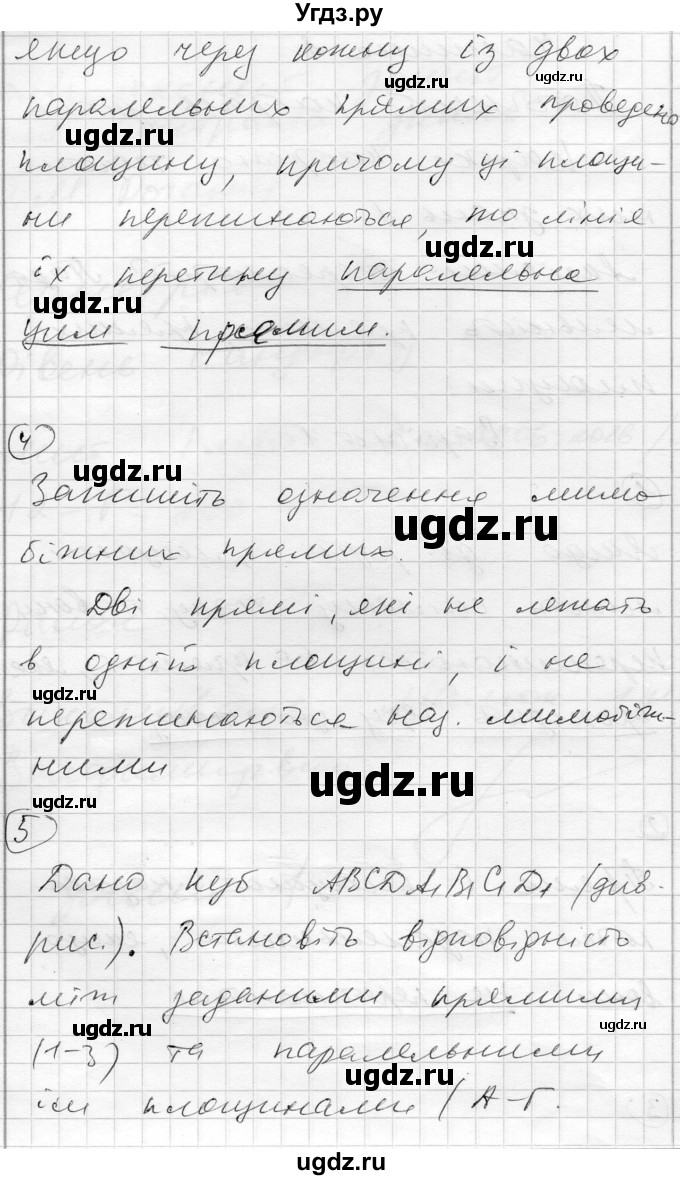 Угдз.ру
якщо через кожну із двох
ugdz.ru
паралельних прямих проведено
ugdz.ru
площину, причому ці площи-
ни перетинаються, то лінія
ugdz.ru
їх перетину паралельна
ugdz.ru
цим прямим.
ugdz.ru
4
ugdz.ru
Запишіть означення мимо
ugdz.ru
біжних прямих.
Дві прямі, які не лежать
в одній площині, і не
ugdz.ru
перетинаються наз. мимобіж-
ними
ugdz.ru
ugdz.ru
5
Дано куб ABCDA1B1C1D1 (див.
рис.). Встановіть відповідність
між заданими прямими
ugdz.ru
ugdz.ru
(1-3) та паралельними
ugdz.ru
їм площинами (А-Г.
ugdz.ru